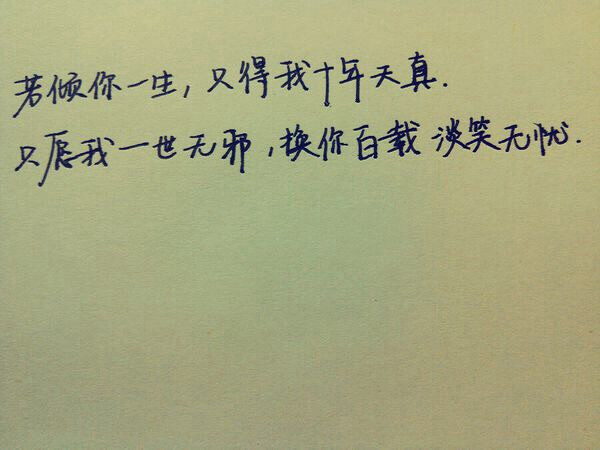 若倾你一生,只得我十年天真.
只愿我一世无邪,换你百载淡笑无忧.